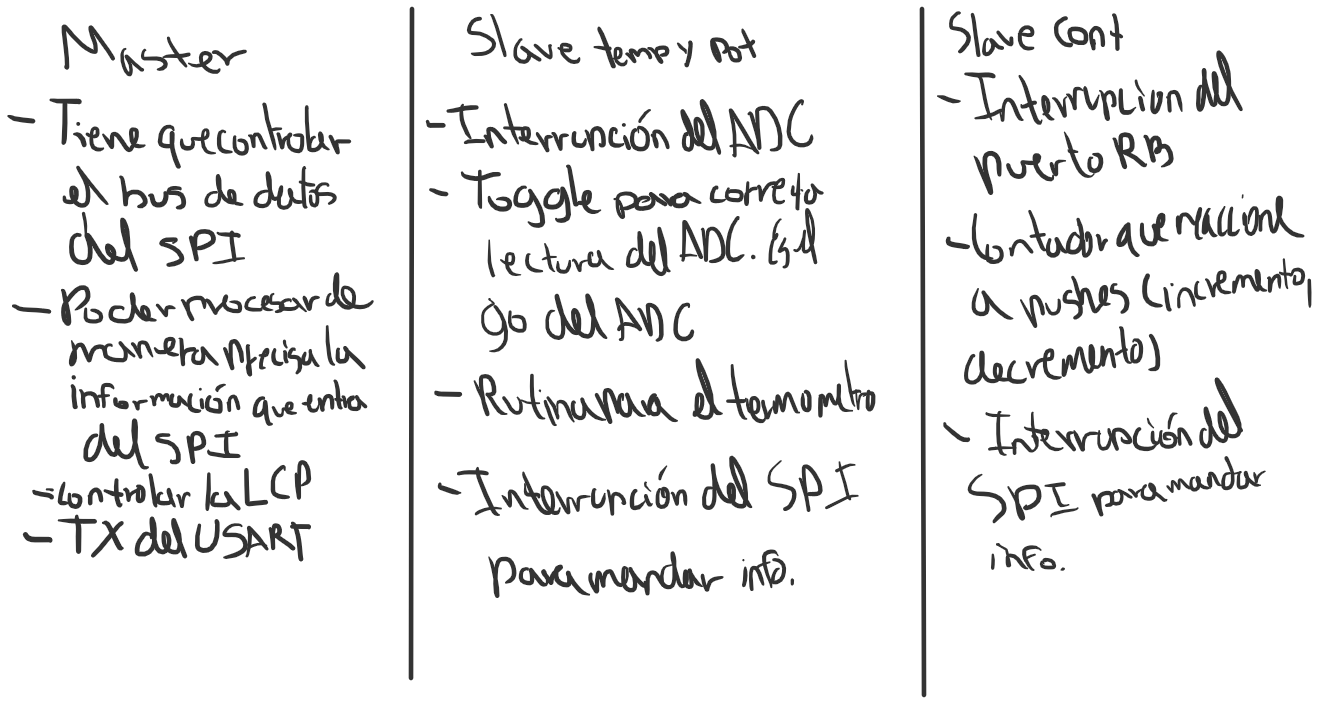 Master
- Tiene que controlar
el bus de datos
del SPI
- Poder procesar de
manera precisa la
información que entra
del SPI
- Controlar la LCD
- TX del USART
Slave temp y pot
- Interrupción del ADC
- Toggle para correcta
lectura del ADC. Es el
go del ADC
- Rutina para el termometro
- Interrupción del SPI
para mandar info.
Slave Cont
- Interrupcion del
puerto RB
- Contador que reaccione
a pushes (incremento,
decremento)
- Interrupción del
SPI para mandar
info.